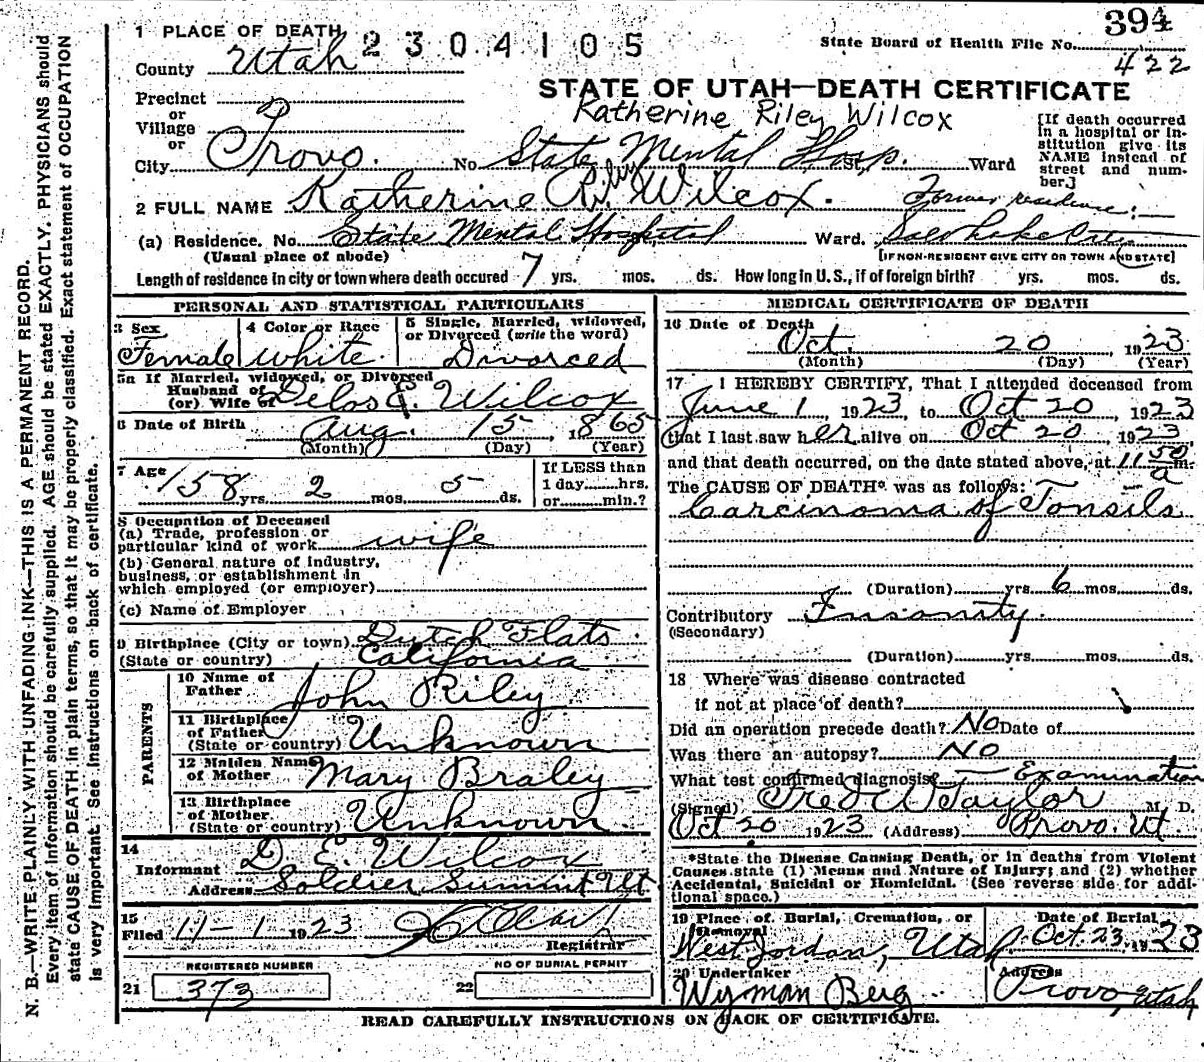 394
1 PLACE OF DEATH 2304105
State Board of Health File No. 422
County Utah
STATE OF UTAH—DEATH CERTIFICATE
Precinct
or
Village
Katherine Riley Wilcox
or
City Provo. No State Mental Hosp. St. Ward
[If death occurred in a hospital or institution give its NAME instead of street and number.]
2 FULL NAME Katherine Riley Wilcox.
Former residence:
(a) Residence. No. State Mental Hospital Ward. Salt Lake City
(Usual place of abode) [IF NON-RESIDENT GIVE CITY OR TOWN AND STATE]
Length of residence in city or town where death occured 7 yrs. mos. ds. How long in U.S., if of foreign birth? yrs. mos. ds.
PERSONAL AND STATISTICAL PARTICULARS
3 Sex Female
4 Color or Race white.
5 Single, Married, widowed, or Divorced (write the word) Divorced
5a If Married, widowed, or Divorced
Husband of
(or) Wife of Delos E. Wilcox
6 Date of Birth Aug. 15, 1865
(Month) (Day) (Year)
7 Age 58 yrs. 2 mos. 5 ds.
If LESS than
1 day hrs.
or min.?
8 Occupation of Deceased
(a) Trade, profession or
particular kind of work wife
(b) General nature of industry,
business, or establishment in
which employed (or employer)
(c) Name of Employer
9 Birthplace (City or town) Dutch Flats.
(State or country) California
PARENTS
10 Name of Father John Riley
11 Birthplace of Father (State or country) Unknown
12 Maiden Name of Mother Mary Braley
13 Birthplace of Mother (State or country) Unknown
14
Informant D. E. Wilcox
Address Soldier Summit Ut
15
Filed 11-1 1923
Registrar
REGISTERED NUMBER
21 373
NO OF BURIAL PERMIT
22
MEDICAL CERTIFICATE OF DEATH
16 Date of Death Oct. 20, 1923
(Month) (Day) (Year)
17 I HEREBY CERTIFY, That I attended deceased from
June 1, 1923, to Oct 20, 1923
that I last saw her alive on Oct 20, 1923
and that death occurred, on the date stated above, at 11 50 a m.
The CAUSE OF DEATH* was as follows:
Carcinoma of Tonsils
(Duration) yrs 6 mos. ds.
Contributory Insanity.
(Secondary)
(Duration) yrs mos. ds.
18 Where was disease contracted
if not at place of death?
Did an operation precede death? No Date of
Was there an autopsy? No
What test confirmed diagnosis? Examination
(Signed) Fred W Taylor M. D.
Oct 20 1923 (Address) Provo. Ut.
*State the Disease Causing Death, or in deaths from Violent
Causes state (1) Means and Nature of Injury; and (2) whether
Accidental, Suicidal or Homicidal. (See reverse side for addi-
tional space.)
19 Place of Burial, Cremation, or Removal
West Jordan, Utah
Date of Burial
Oct. 23, 1923
20 Undertaker
Wyman Berg
Address
Provo, Utah
READ CAREFULLY INSTRUCTIONS ON BACK OF CERTIFICATE.
N. B.—WRITE PLAINLY WITH UNFADING INK—THIS IS A PERMANENT RECORD.
Every item of information should be carefully supplied. AGE should be stated EXACTLY. PHYSICIANS should
state CAUSE OF DEATH in plain terms, so that it may be properly classified. Exact statement of OCCUPATION
is very important. See instructions on back of certificate.